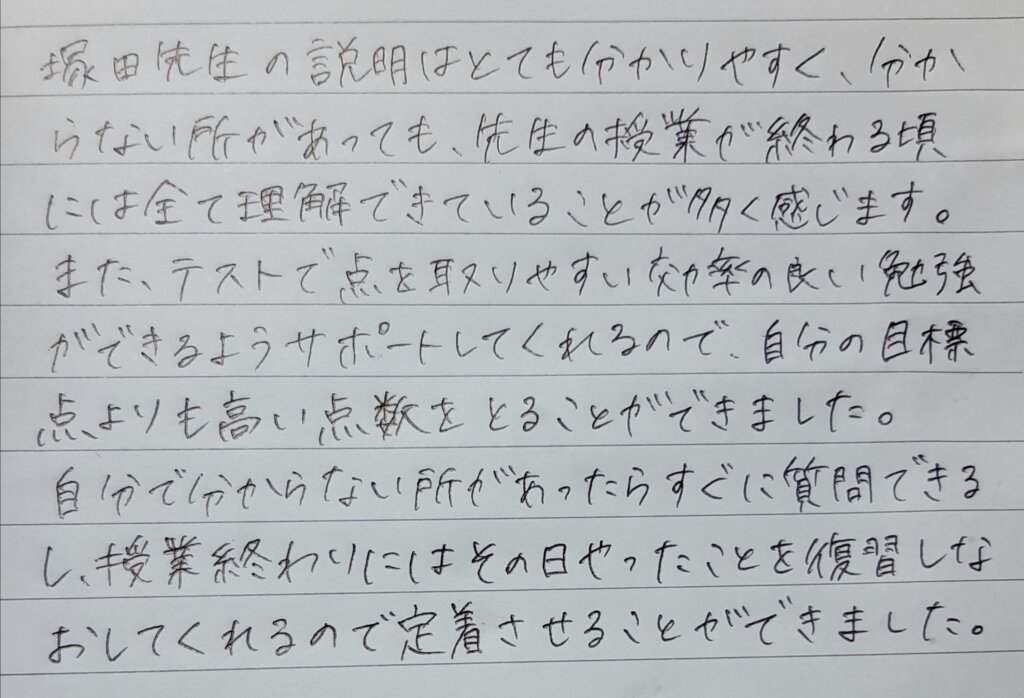 塚田先生の説明はとても分かりやすく、分か
らない所があっても、先生の授業が終わる頃
には全て理解できていることが多く感じます。
また、テストで点を取りやすい効率の良い勉強
ができるようサポートしてくれるので、自分の目標
点よりも高い点数をとることができました。
自分で分からない所があったらすぐに質問できる
し、授業終わりにはその日やったことを復習しな
おしてくれるので定着させることができました。